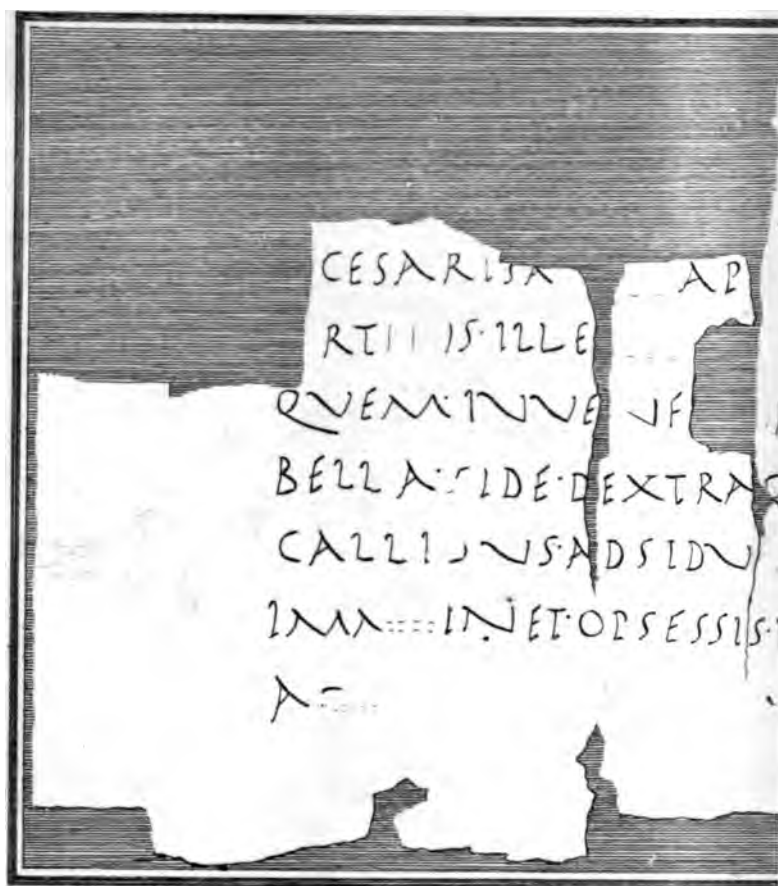 CESARISA AP
RT IS·ILLE
QVEM·IVVE VE
BELLA· IDE·DEXTRA
CALLI VS·ADSIDV
IMM INET·OPSESSIS·
A